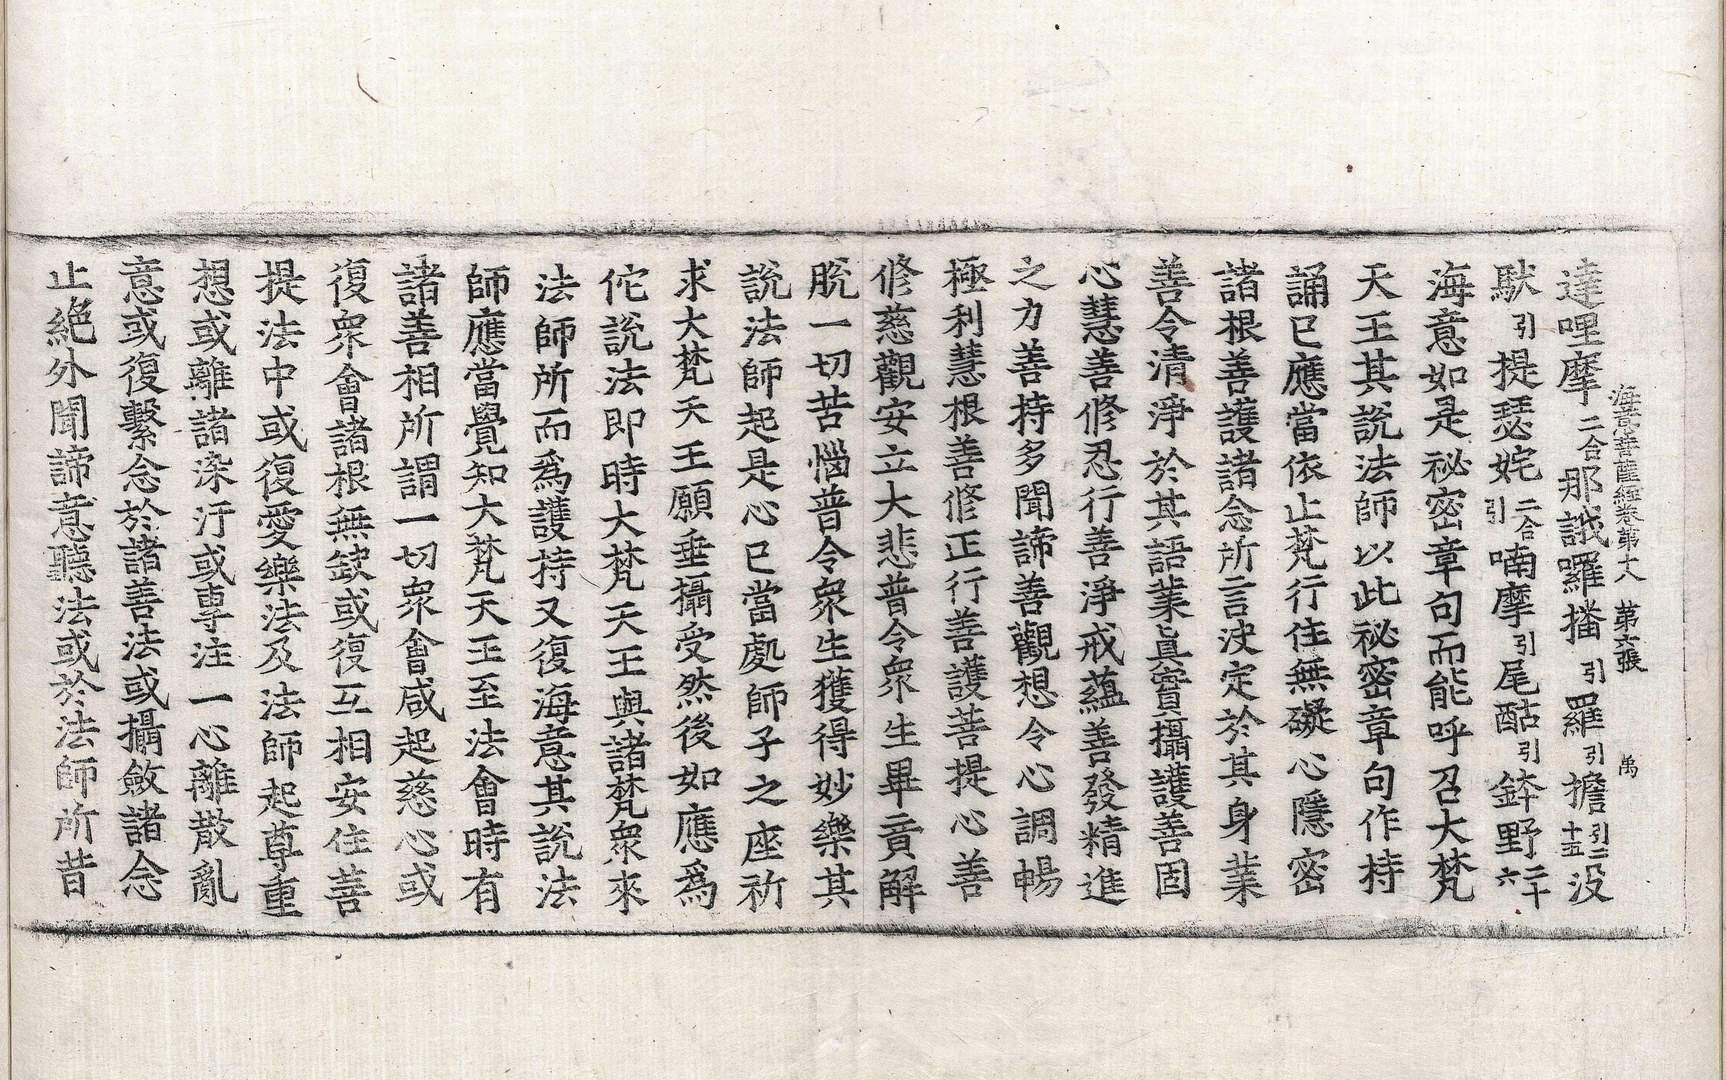 海意菩薩經卷第十八　第六張　禹
達哩摩二合那誐囉播引羅引擔引二十五没
馱引提瑟姹二合引喃摩引尾酤引鉢野二十六
海意如是秘密章句而能呼召大梵
天王其説法師以此秘密章句作持
誦已應當依止梵行住無礙心隱密
諸根善護諸念所言决定於其身業
善令清淨於其語業眞實攝護善固
心慧善修忍行善淨戒蘊善發精進
之力善持多聞諦善觀想令心調暢
極利慧根善修正行善護菩提心善
修慈觀安立大悲普令衆生畢竟解
脫一切苦惱普令衆生獲得妙樂其
說法師起是心已當處師子之座祈
求大梵天王願垂攝受然後如應爲
佗說法即時大梵天王與諸梵衆來
法師所而爲護持又復海意其說法
師應當覺知大梵天王至法會時有
諸善相所謂一切衆會咸起慈心或
復衆會諸根無缺或復互相安住菩
提法中或復愛樂法及法師起尊重
想或離諸染汙或專注一心離散亂
意或復繫念於諸善法或攝斂諸念
止絕外聞諦意聽法或於法師所昔